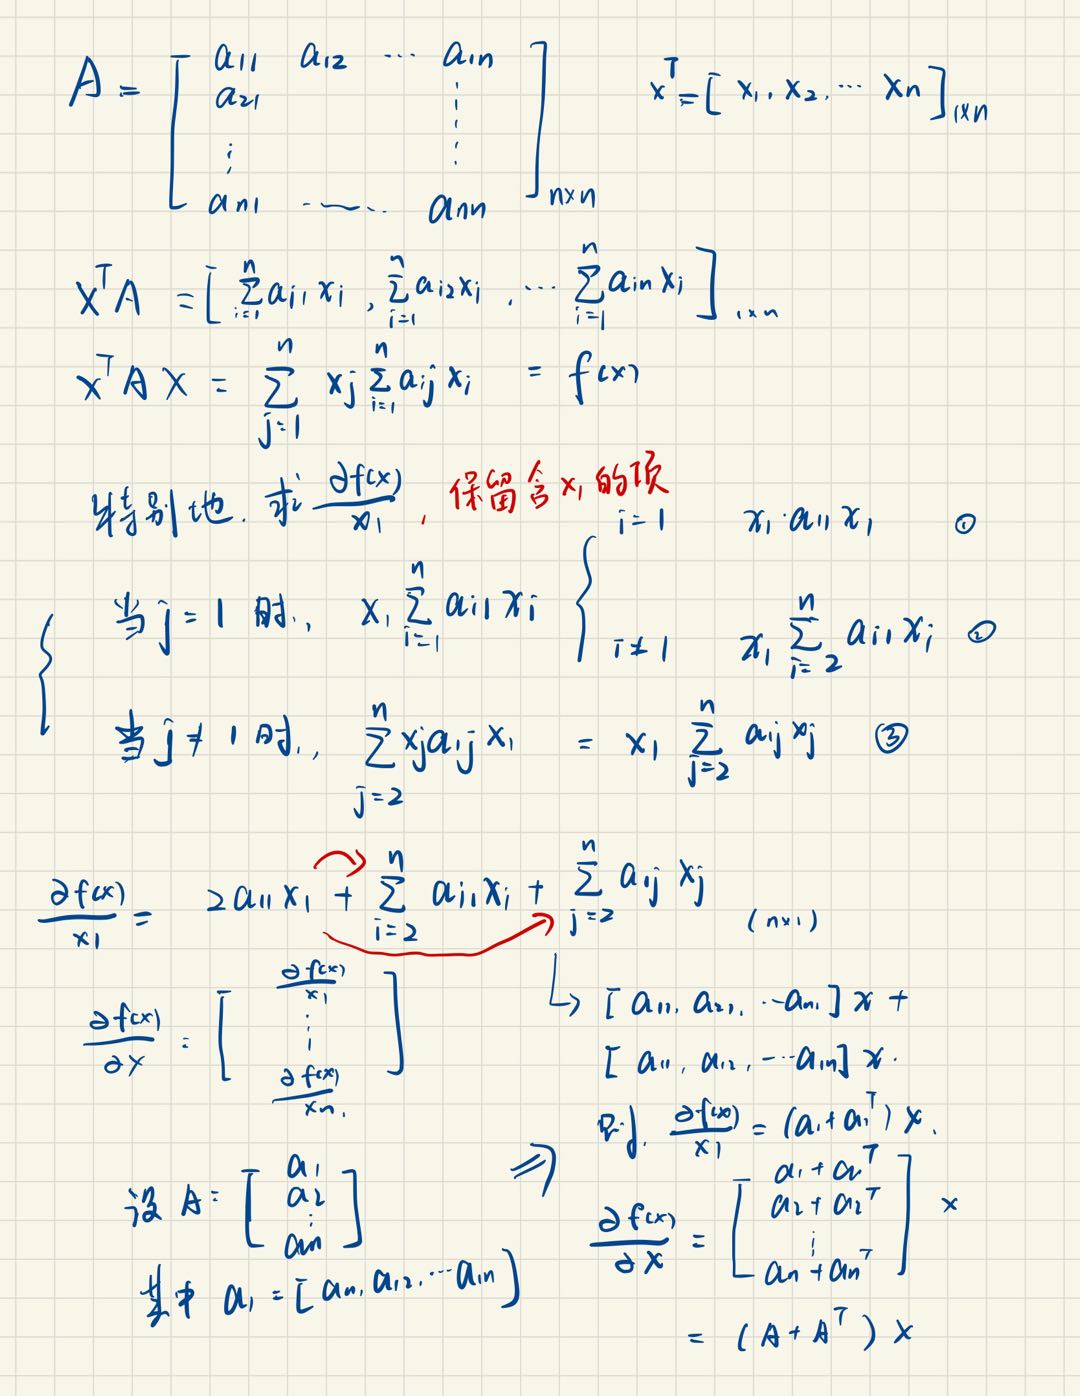 A = [ a11 a12 ... a1n
a21 ⋮
⋮ ⋮
an1 ...... ann ]n×n
x^T = [ x1, x2, ... xn ]1×n
x^T A = [ ∑_{i=1}^{n} ai1 xi , ∑_{i=1}^{n} ai2 xi , ... ∑_{i=1}^{n} ain xi ]1×n
x^T A x = ∑_{j=1}^{n} xj ∑_{i=1}^{n} aij xi = f(x)
特别地, 求 ∂f(x)/x1 , 保留含x1的项
当 j=1 时, x1 ∑_{i=1}^{n} ai1 xi { i=1 x1·a11 x1 ①
i≠1 x1 ∑_{i=2}^{n} ai1 xi ②
当 j≠1 时, ∑_{j=2}^{n} xj a1j x1 = x1 ∑_{j=2}^{n} a1j xj ③
∂f(x)/x1 = 2a11 x1 + ∑_{i=2}^{n} ai1 xi + ∑_{j=2}^{n} a1j xj (n×1)
∂f(x)/∂x = [ ∂f(x)/x1
⋮
∂f(x)/xn ]
↳ [ a11, a21, ... an1 ] x +
[ a11, a12, ... a1n ] x.
即, ∂f(x)/x1 = (a1 + a1^T) x.
设 A = [ a1
a2
⋮
an ]
其中 a1 = [ a11, a12, ... a1n ]
⇒ ∂f(x)/∂x = [ a1 + a1^T
a2 + a2^T
⋮
an + an^T ] x
= (A + A^T) x